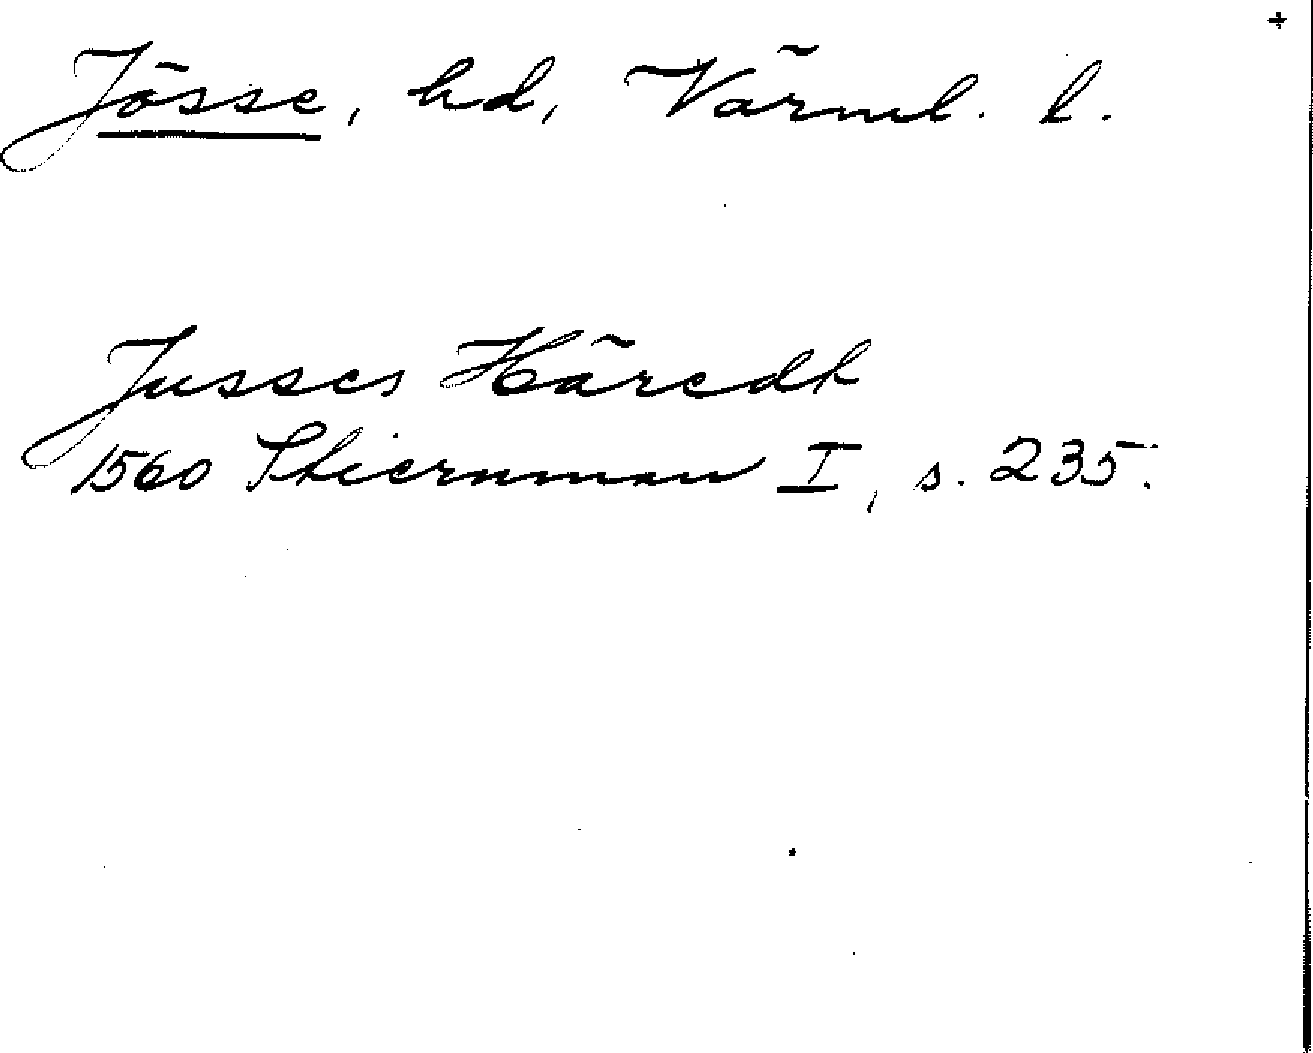 Jösse, hd, Värml. l.
Jusses Häredh
1560 Stiernman I, s. 235.